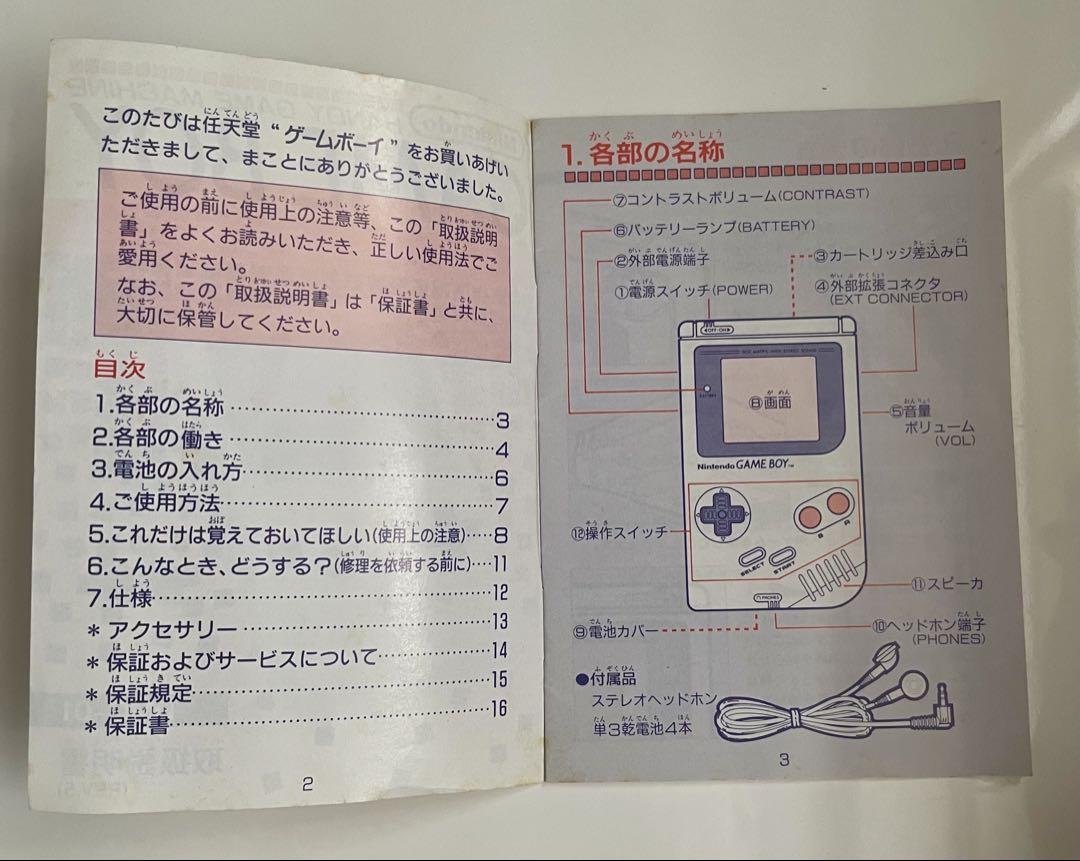 このたびは任天堂“ゲームボーイ”をお買いあげい
ただきまして、まことにありがとうございました。
ご使用の前に使用上の注意等、この「取扱説明
書」をよくお読みいただき、正しい使用法でご
愛用ください。
なお、この「取扱説明書」は「保証書」と共に、
大切に保管してください。
目次
1.各部の名称……3
2.各部の働き……4
3.電池の入れ方……6
4.ご使用方法……7
5.これだけは覚えておいてほしい(使用上の注意)……8
6.こんなとき、どうする?(修理を依頼する前に)……11
7.仕様……12
* アクセサリー……13
* 保証およびサービスについて……14
* 保証規定……15
* 保証書……16
2
1.各部の名称
⑦コントラストボリューム(CONTRAST)
⑥バッテリーランプ(BATTERY)
②外部電源端子
①電源スイッチ(POWER)
③カートリッジ差込み口
④外部拡張コネクタ
(EXT CONNECTOR)
OFF・ON
BATTERY
⑧画面
⑤音量
ボリューム
(VOL)
Nintendo GAME BOY™
⑫操作スイッチ
B
A
SELECT
START
⑪スピーカ
PHONES
⑨電池カバー
⑩ヘッドホン端子
(PHONES)
●付属品
ステレオヘッドホン
単3乾電池4本
3